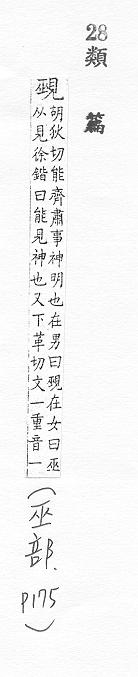 28 類 篇
覡 胡狄切能齊肅事神明也在男曰覡在女曰巫
从見徐鍇曰能見神也又下革切文一重音一
(巫部. P175)